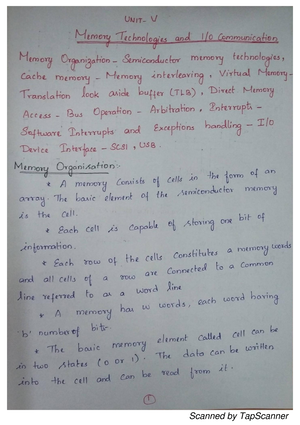 UNIT- V
Memory Technologies and I/O Communication
Memory Organization - Semiconductor memory technologies,
Cache memory - Memory interleaving, Virtual Memory -
Translation look aside buffer (TLB), Direct Memory
Access - Bus Operation - Arbitration, Interrupts -
Software Interrupts and Exceptions handling - I/O
Device Interface - SCSI, USB.
Memory Organisation:-
* A memory consists of cells in the form of an
array. The basic element of the semiconductor memory
is the cell.
* Each cell is capable of storing one bit of
information.
* Each row of the cells constitutes a memory words
and all cells of a row are connected to a common
line referred to as a word line
* A memory has w words, each word having
'b' number of bits.
* The basic memory element called cell can be
in two states (0 or 1). The data can be written
into the cell and can be read from it.
1
Scanned by TapScanner